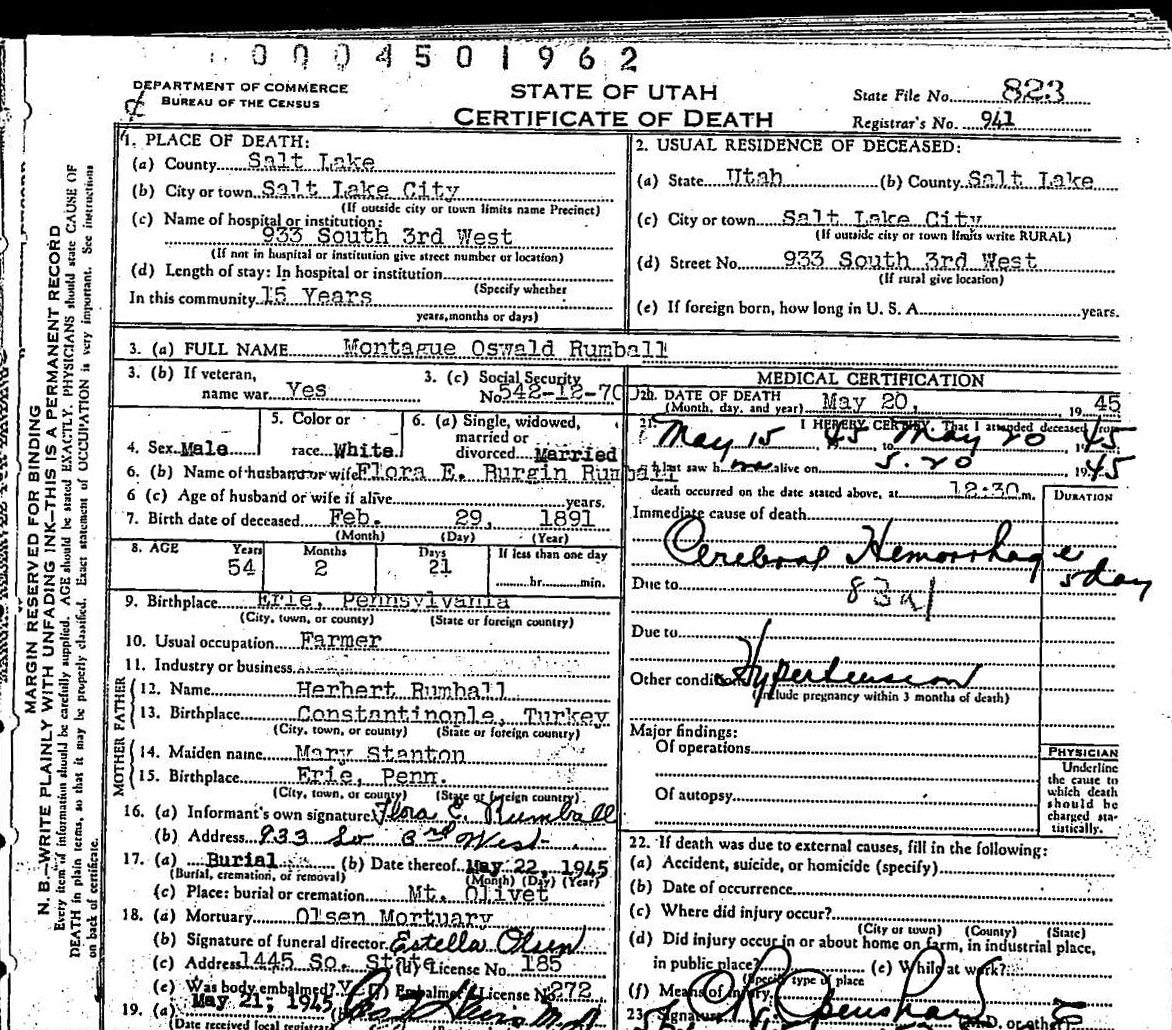 0004501962
DEPARTMENT OF COMMERCE
BUREAU OF THE CENSUS
STATE OF UTAH
CERTIFICATE OF DEATH
State File No. 823
Registrar's No. 941
MARGIN RESERVED FOR BINDING
N. B.—WRITE PLAINLY WITH UNFADING INK—THIS IS A PERMANENT RECORD
Every item of information should be carefully supplied. AGE should be stated EXACTLY. PHYSICIANS should state CAUSE OF
DEATH in plain terms, so that it may be properly classified. Exact statement of OCCUPATION is very important. See instructions
on back of certificate.
1. PLACE OF DEATH:
(a) County Salt Lake
(b) City or town Salt Lake City
(If outside city or town limits name Precinct)
(c) Name of hospital or institution:
933 South 3rd West
(If not in hospital or institution give street number or location)
(d) Length of stay: In hospital or institution
(Specify whether
In this community 15 Years
years, months or days)
2. USUAL RESIDENCE OF DECEASED:
(a) State Utah (b) County Salt Lake
(c) City or town Salt Lake City
(If outside city or town limits write RURAL)
(d) Street No. 933 South 3rd West
(If rural give location)
(e) If foreign born, how long in U. S. A. years.
3. (a) FULL NAME Montague Oswald Rumball
3. (b) If veteran,
name war Yes
3. (c) Social Security
No. 542-12-70
4. Sex Male
5. Color or
race White
6. (a) Single, widowed,
married or
divorced Married
6. (b) Name of husband or wife Flora E. Burgin Rumball
6 (c) Age of husband or wife if alive years.
7. Birth date of deceased Feb. 29, 1891
(Month) (Day) (Year)
8. AGE Years Months Days If less than one day
54 2 21 hr. min.
9. Birthplace Erie, Pennsylvania
(City, town, or county) (State or foreign country)
10. Usual occupation Farmer
11. Industry or business
FATHER
12. Name Herbert Rumball
13. Birthplace Constantinople, Turkey
(City, town, or county) (State or foreign country)
MOTHER
14. Maiden name Mary Stanton
15. Birthplace Erie, Penn.
(City, town, or county) (State or foreign country)
16. (a) Informant's own signature Flora E. Rumball
(b) Address 933 So 3rd West
17. (a) Burial (b) Date thereof May 22, 1945
(Burial, cremation, or removal) (Month) (Day) (Year)
(c) Place: burial or cremation Mt. Olivet
18. (a) Mortuary Olsen Mortuary
(b) Signature of funeral director Estella Olsen
(c) Address 1445 So. State (d) License No. 185
(e) Was body embalmed? (f) Embalmer License No. 272
19. (a) May 21, 1945
(Date received local registrar
MEDICAL CERTIFICATION
20. DATE OF DEATH
(Month, day, and year) May 20, 1945
21. I HEREBY CERTIFY, That I attended deceased from
May 15 45 to May 20, 1945
I last saw h alive on 5.20 1945
death occurred on the date stated above, at 12:30 m.
DURATION
Immediate cause of death
Cerebral Hemorrhage
5 day
Due to 83a
Due to
Other conditions Hypertension
(Include pregnancy within 3 months of death)
Major findings:
Of operations
Of autopsy
PHYSICIAN
Underline
the cause to
which death
should be
charged sta-
tistically.
22. If death was due to external causes, fill in the following:
(a) Accident, suicide, or homicide (specify)
(b) Date of occurrence
(c) Where did injury occur?
(City or town) (County) (State)
(d) Did injury occur in or about home on farm, in industrial place,
in public place? (e) While at work?
(Specify type of place
(f) Means of injury
23. Signature M.D. or other